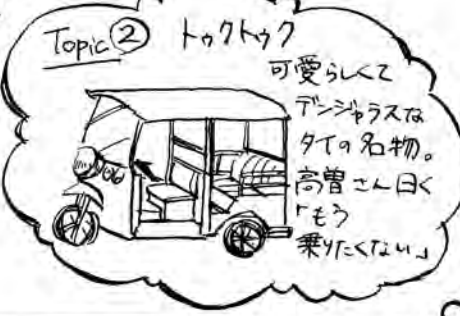 Topic② トゥクトゥク
可愛らしくて
デンジャラスな
タイの名物。
高曽さん曰く
「もう
乗りたくない」